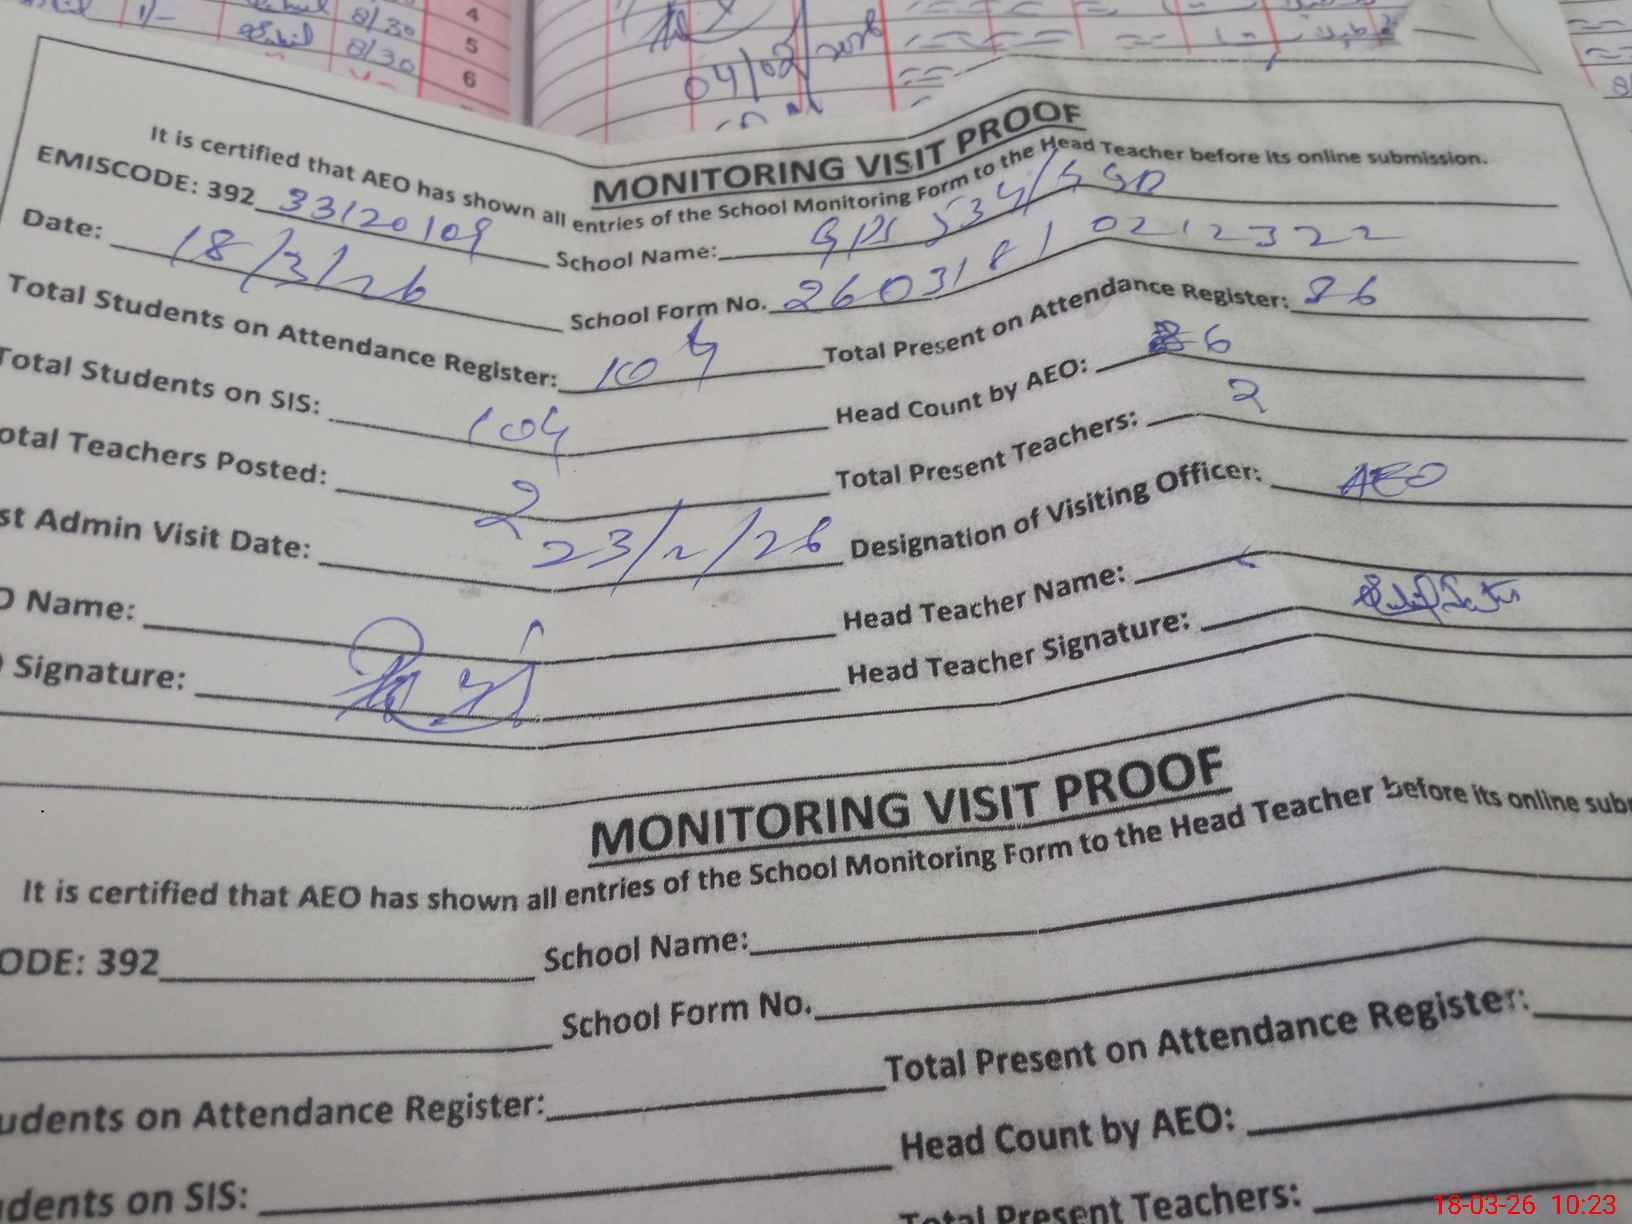 8/30
4
8/30
5
6
04/02
MONITORING VISIT PROOF
It is certified that AEO has shown all entries of the School Monitoring Form to the Head Teacher before its online submission.
EMISCODE: 392 33120109 School Name: GPS 534/GGD
Date: 18/3/26 School Form No. 26031810212322
Total Students on Attendance Register: 104 Total Present on Attendance Register: 86
Total Students on SIS: 104 Head Count by AEO: 86
otal Teachers Posted: 2 Total Present Teachers: 2
st Admin Visit Date: 23/2/26 Designation of Visiting Officer: AEO
O Name: Head Teacher Name:
Signature: Head Teacher Signature:
MONITORING VISIT PROOF
It is certified that AEO has shown all entries of the School Monitoring Form to the Head Teacher before its online subm
ODE: 392 School Name:
School Form No.
udents on Attendance Register: Total Present on Attendance Register:
Head Count by AEO:
dents on SIS:
Total Present Teachers:
18-03-26 10:23